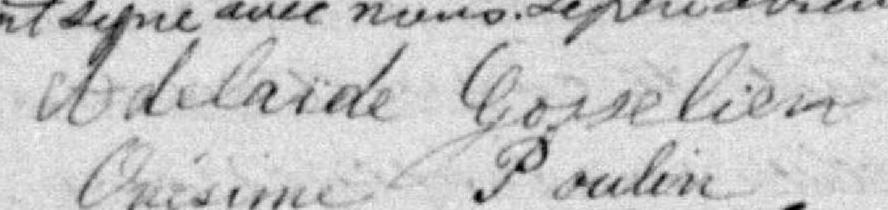 nt signé avec nous. Le père
Adelaïde Gosselien
Onésime Poulin